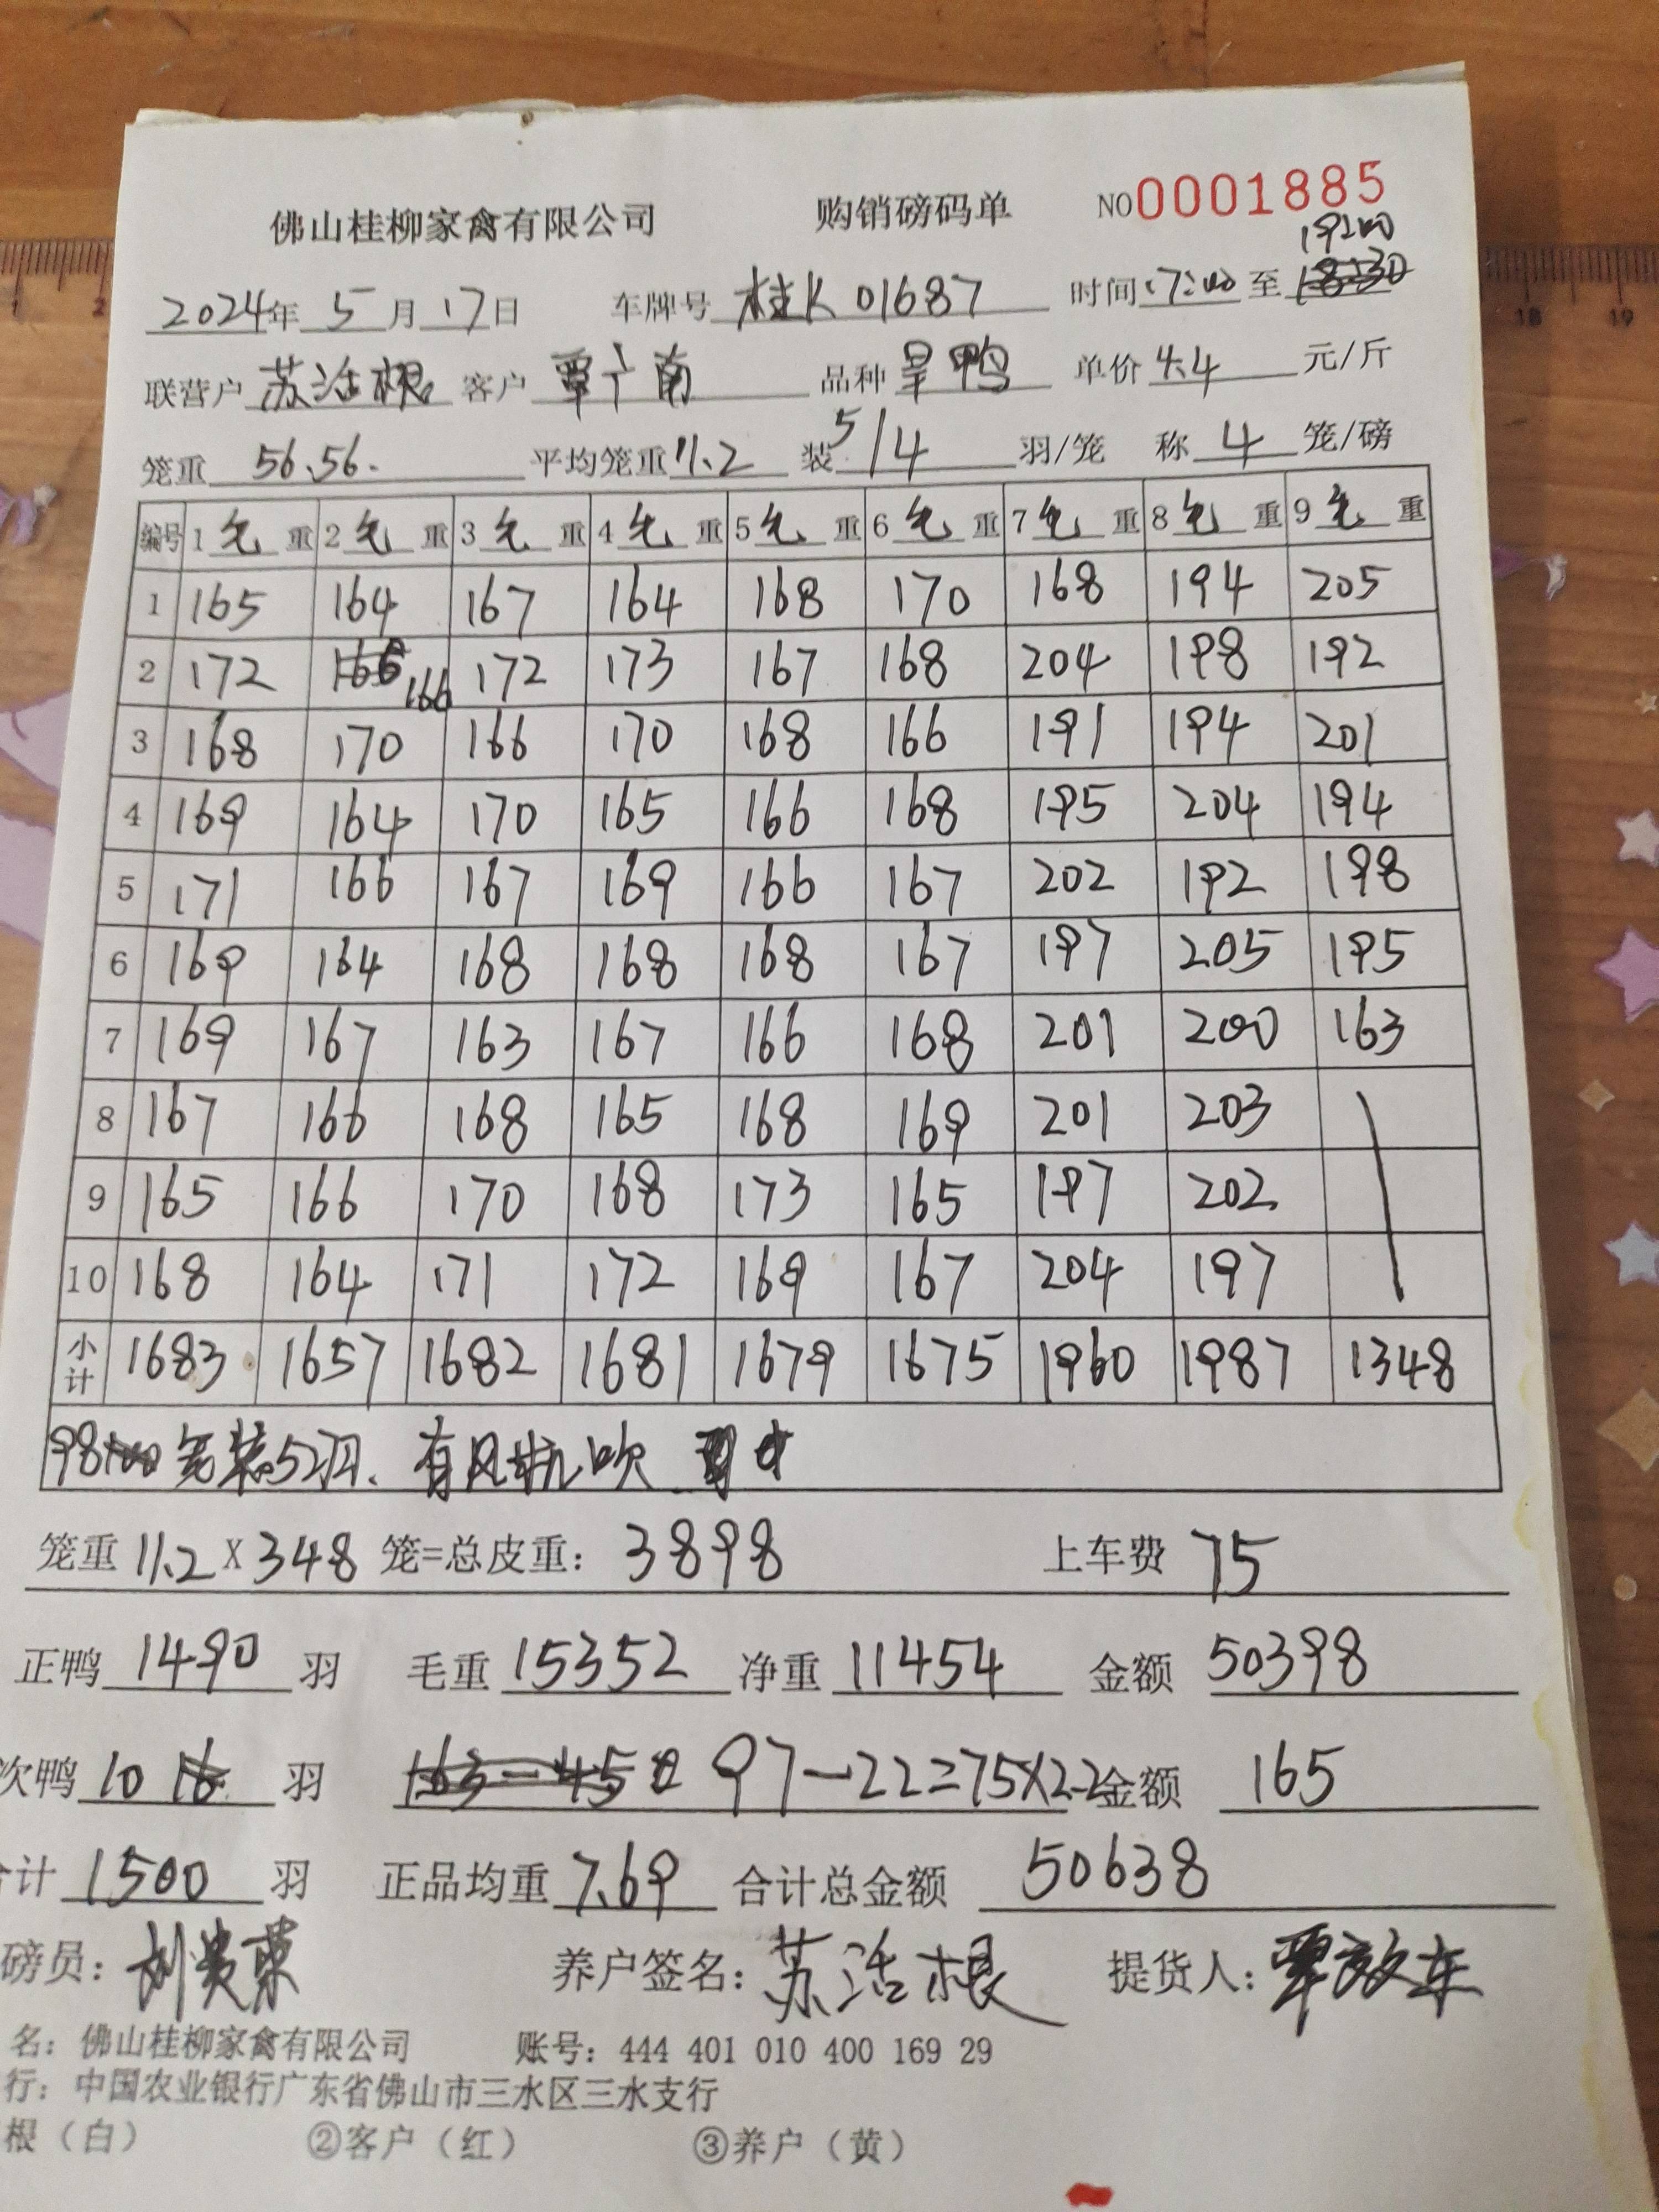 佛山桂柳家禽有限公司 购销磅码单 NO 0001885
19:00
2024年 5 月 17 日 车牌号 桂K 01687 时间 17:00 至 18:30
联营户 苏活根 客户 覃广南 品种 旱鸭 单价 4.4 元/斤
笼重 56.56. 平均笼重 11.2 装 5/4 羽/笼 称 4 笼/磅
编号 1 毛 重 2 毛 重 3 毛 重 4 毛 重 5 毛 重 6 毛 重 7 毛 重 8 毛 重 9 毛 重
1 165 164 167 164 168 170 168 194 205
2 172 166 166 172 173 167 168 204 198 192
3 168 170 166 170 168 166 191 194 201
4 169 164 170 165 166 168 195 204 194
5 171 166 167 169 166 167 202 192 198
6 169 164 168 168 168 167 197 205 195
7 169 167 163 167 166 168 201 200 163
8 167 166 168 165 168 169 201 203
9 165 166 170 168 173 165 197 202
10 168 164 171 172 169 167 204 197
小计 1683 1657 1682 1681 1679 1675 1960 1987 1348
98 笼装5羽. 有风机吹
笼重 11.2 X 348 笼=总皮重: 3898 上车费 75
正鸭 1490 羽 毛重 15352 净重 11454 金额 50398
次鸭 10 16 羽 163-45 97-22=75X2.2 金额 165
计 1500 羽 正品均重 7.69 合计总金额 50638
磅员: 刘贵荣 养户签名: 苏活根 提货人:
名: 佛山桂柳家禽有限公司 账号: 444 401 010 400 169 29
行: 中国农业银行广东省佛山市三水区三水支行
根(白) ②客户(红) ③养户(黄)